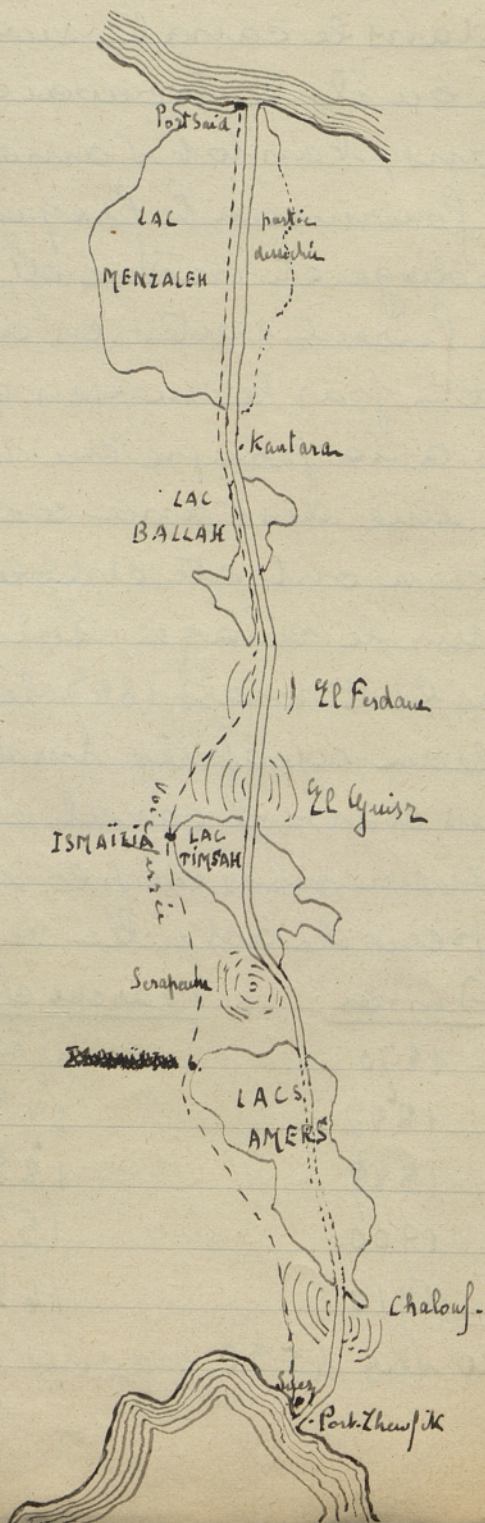 Port Saïd
LAC
MENZALEH
partie
desséchée
Kantara
LAC
BALLAH
El Ferdane
El Guisr
Voie ferrée
ISMAÏLIA
LAC
TIMSAH
Serapeum
LACS
AMERS
Chalouf.
Suez
Port-Thewfik